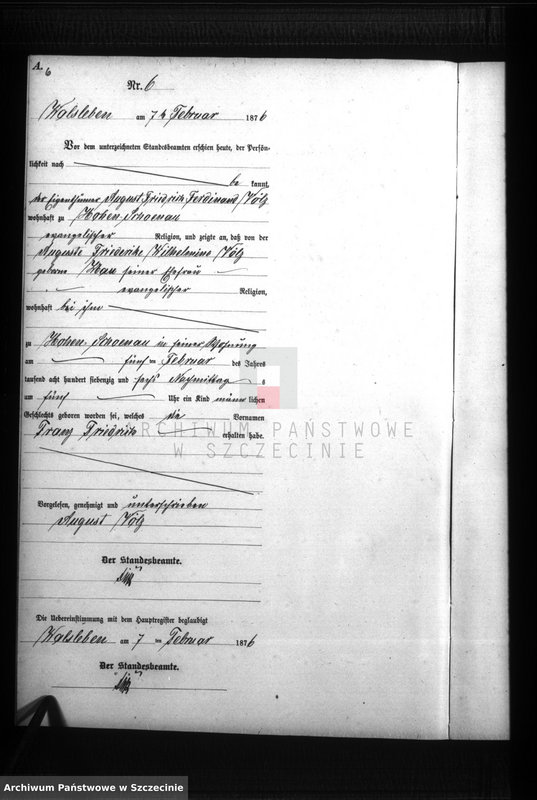 A.
6
Nr. 6
Walsleben am 7 ten Februar 1876
Vor dem unterzeichneten Standesbeamten erschien heute, der Persön-
lichkeit nach
be kannt,
der Eigenthümer August Friedrich Ferdinand Völz
wohnhaft zu Hohen Schoenau
evangelischer Religion, und zeigte an, daß von der
Auguste Friederike Wilhelmine Völz
geborne seiner Ehefrau
evangelischer Religion,
wohnhaft bei ihm
zu Hohen Schoenau in seiner Wohnung
am fünf ten Februar des Jahres
tausend acht hundert siebenzig und sechs Nachmittag s
um fünf Uhr ein Kind männ lichen
Geschlechts geboren worden sei, welches die Vornamen
Franz Friedrich erhalten habe.
ARCHIWUM PAŃSTWOWE
W SZCZECINIE
Vorgelesen, genehmigt und unterschrieben
August Völz
Der Standesbeamte.
Die Uebereinstimmung mit dem Hauptregister beglaubigt
Walsleben am 7 ten Februar 1876
Der Standesbeamte.
Archiwum Państwowe w Szczecinie